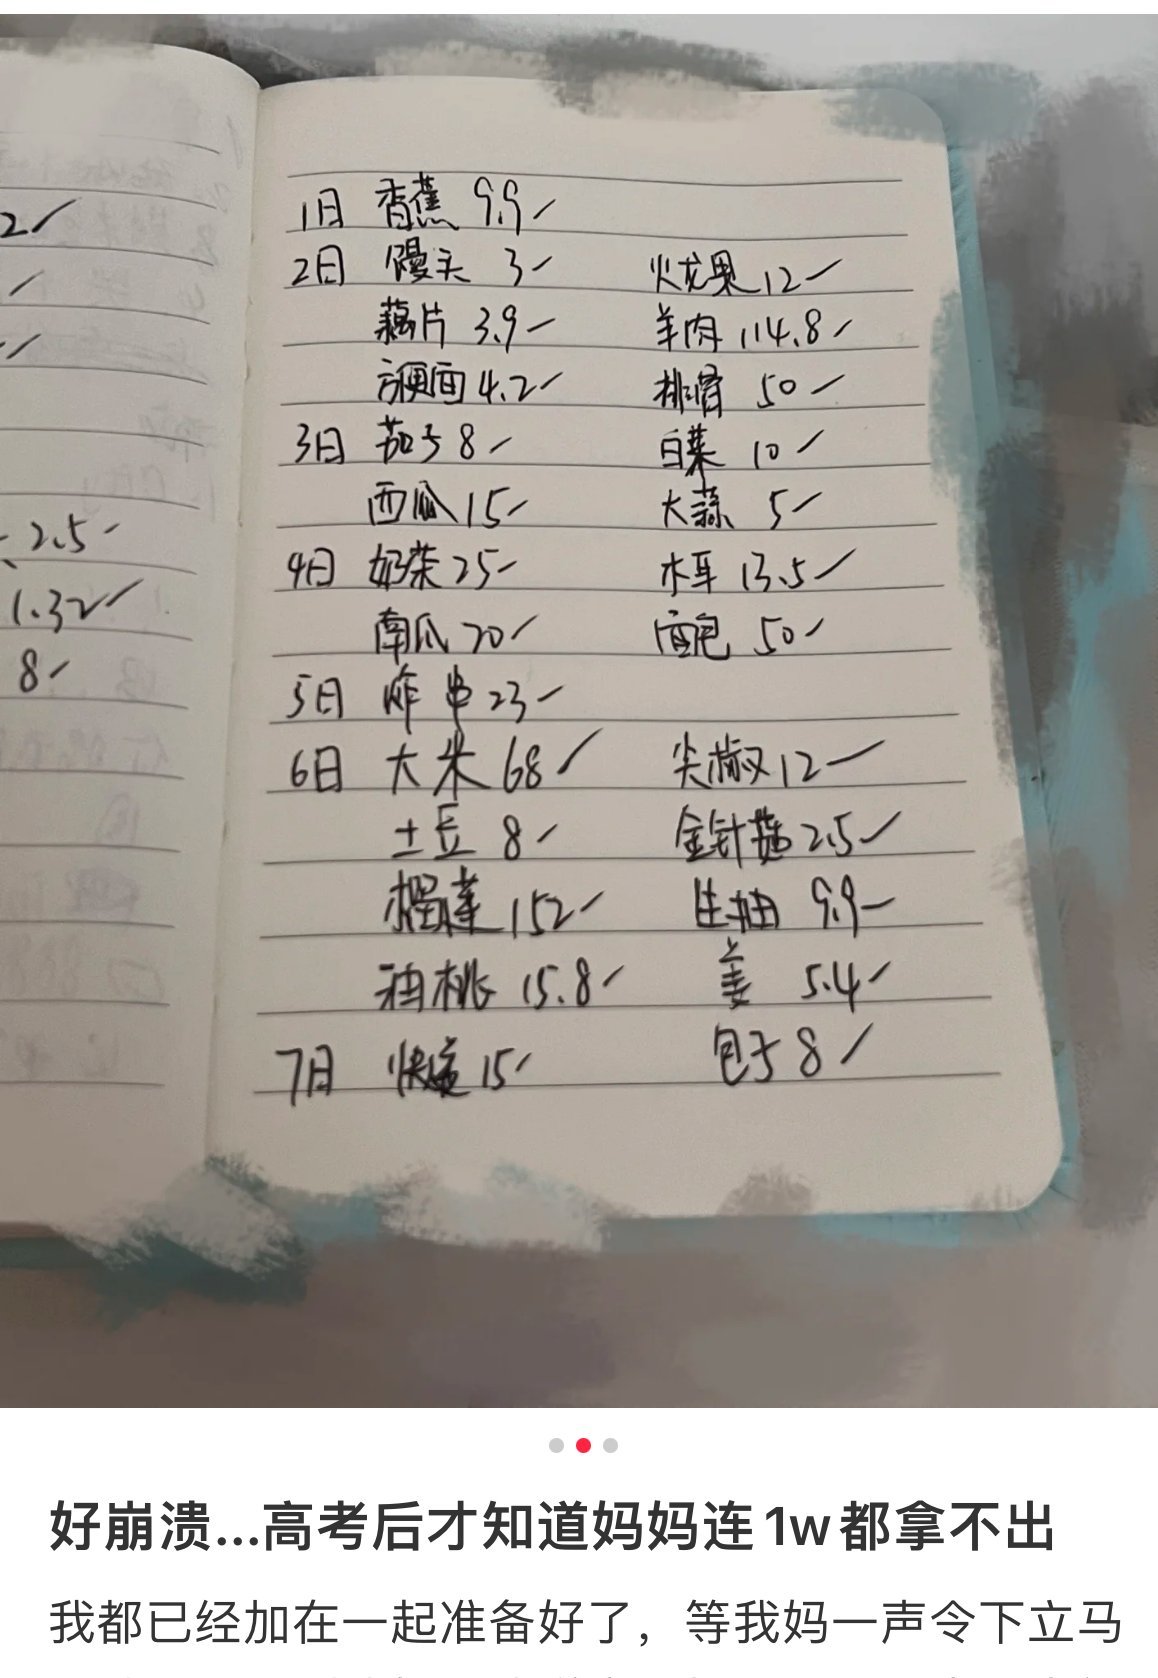 2
2.5
1.32
8
1日 香蕉 9.9
2日 馒头 3 火龙果 12
藕片 3.9 羊肉 114.8
方便面 4.2 排骨 50
3日 茄子 8 白菜 10
西瓜 15 大蒜 5
4日 奶茶 25 木耳 13.5
南瓜 20 面包 50
5日 炸串 23
6日 大米 68 尖椒 12
土豆 8 金针菇 2.5
榴莲 152 生抽 9.9
油桃 15.8 姜 5.4
7日 快递 15 包子 8
好崩溃...高考后才知道妈妈连1w都拿不出
我都已经加在一起准备好了，等我妈一声令下立马